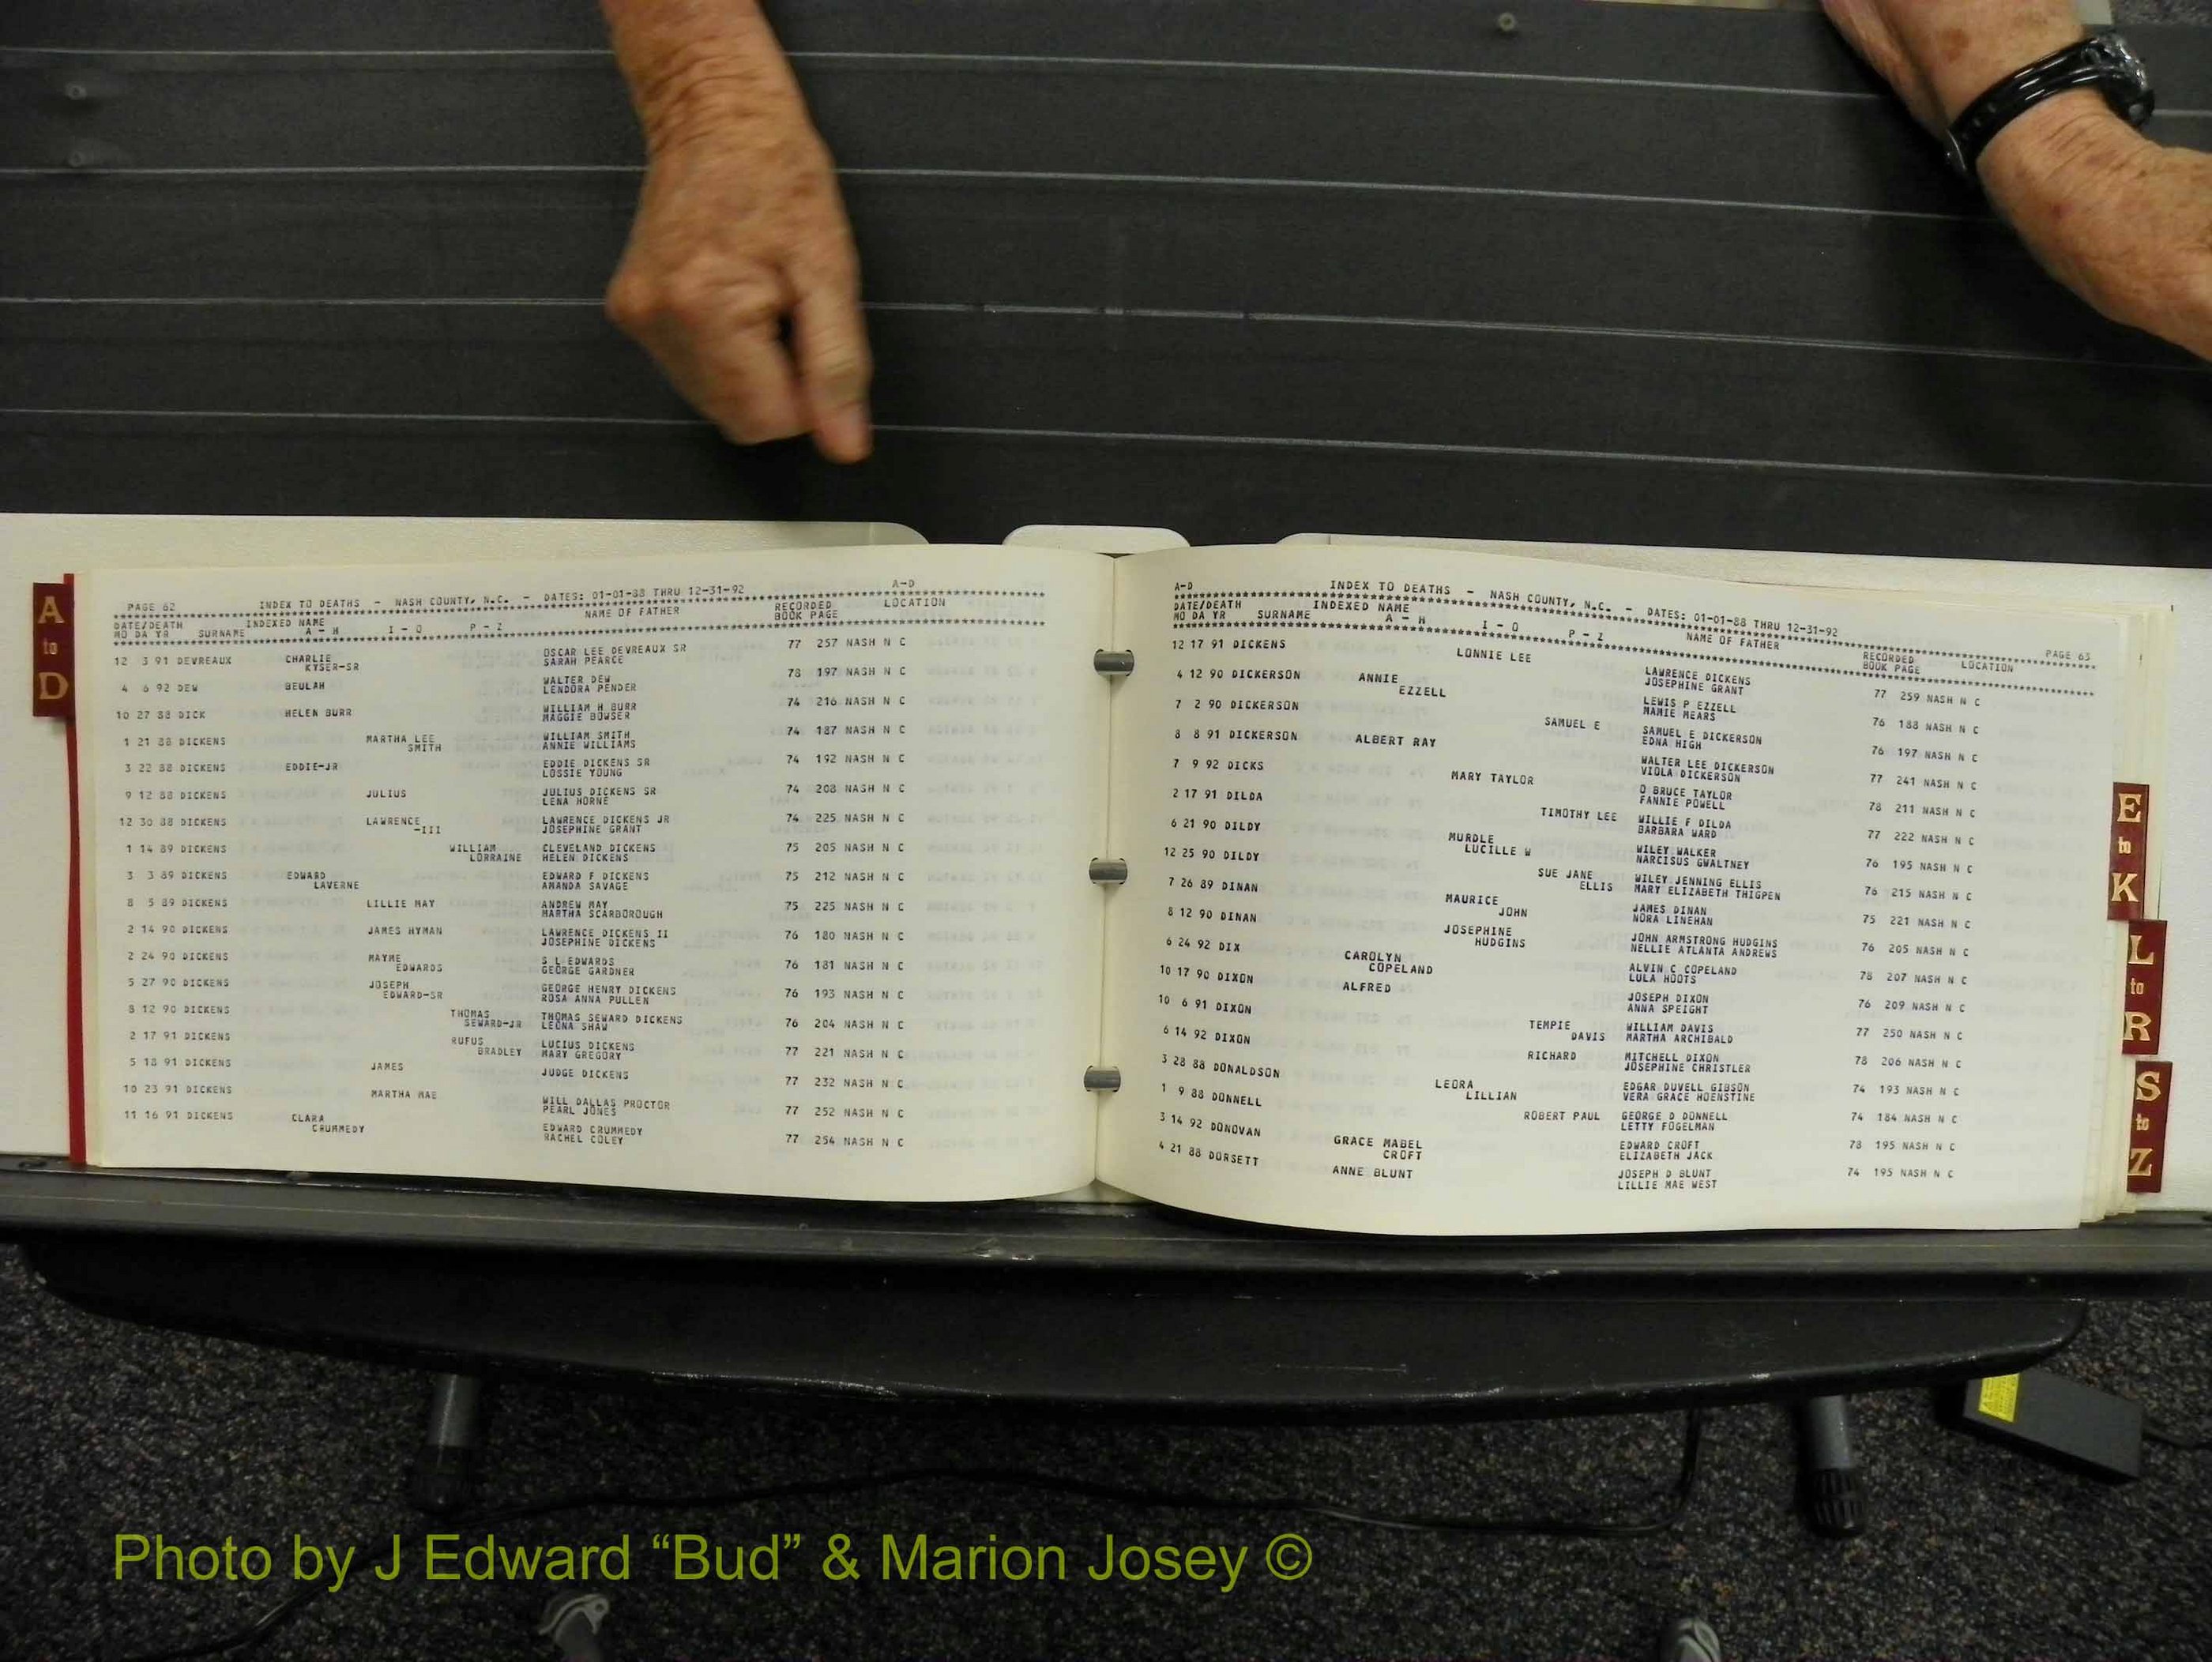 A
to
D
A-D
PAGE 62 INDEX TO DEATHS - NASH COUNTY, N.C. - DATES: 01-01-88 THRU 12-31-92
DATE/DEATH INDEXED NAME NAME OF FATHER RECORDED LOCATION
MO DA YR SURNAME A - H I - O P - Z BOOK PAGE
12 3 91 DEVREAUX CHARLIE OSCAR LEE DEVREAUX SR 77 257 NASH N C
KYSER-SR SARAH PEARCE
4 6 92 DEW BEULAH WALTER DEW 78 197 NASH N C
LENDORA PENDER
10 27 88 DICK HELEN BURR WILLIAM H BURR 74 216 NASH N C
MAGGIE BOWSER
1 21 88 DICKENS MARTHA LEE WILLIAM SMITH 74 187 NASH N C
SMITH ANNIE WILLIAMS
3 22 88 DICKENS EDDIE-JR EDDIE DICKENS SR 74 192 NASH N C
LOSSIE YOUNG
9 12 88 DICKENS JULIUS JULIUS DICKENS SR 74 208 NASH N C
LENA HORNE
12 30 88 DICKENS LAWRENCE LAWRENCE DICKENS JR 74 225 NASH N C
-III JOSEPHINE GRANT
1 14 89 DICKENS WILLIAM CLEVELAND DICKENS 75 205 NASH N C
LORRAINE HELEN DICKENS
3 3 89 DICKENS EDWARD EDWARD F DICKENS 75 212 NASH N C
LAVERNE AMANDA SAVAGE
8 5 89 DICKENS LILLIE MAY ANDREW MAY 75 225 NASH N C
MARTHA SCARBOROUGH
2 14 90 DICKENS JAMES HYMAN LAWRENCE DICKENS II 76 180 NASH N C
JOSEPHINE DICKENS
2 24 90 DICKENS MAYME S L EDWARDS 76 181 NASH N C
EDWARDS GEORGE GARDNER
5 27 90 DICKENS JOSEPH GEORGE HENRY DICKENS 76 193 NASH N C
EDWARD-SR ROSA ANNA PULLEN
8 12 90 DICKENS THOMAS THOMAS SEWARD DICKENS 76 204 NASH N C
SEWARD-JR LEONA SHAW
2 17 91 DICKENS RUFUS LUCIUS DICKENS 77 221 NASH N C
BRADLEY MARY GREGORY
5 18 91 DICKENS JAMES JUDGE DICKENS 77 232 NASH N C
10 23 91 DICKENS MARTHA MAE WILL DALLAS PROCTOR 77 252 NASH N C
PEARL JONES
11 16 91 DICKENS CLARA EDWARD CRUMMEDY 77 254 NASH N C
CRUMMEDY RACHEL COLEY
A-D INDEX TO DEATHS - NASH COUNTY, N.C. - DATES: 01-01-88 THRU 12-31-92 PAGE 63
DATE/DEATH INDEXED NAME NAME OF FATHER RECORDED LOCATION
MO DA YR SURNAME A - H I - O P - Z BOOK PAGE
12 17 91 DICKENS LONNIE LEE LAWRENCE DICKENS 77 259 NASH N C
JOSEPHINE GRANT
4 12 90 DICKERSON ANNIE LEWIS P EZZELL 76 188 NASH N C
EZZELL MAMIE MEARS
7 2 90 DICKERSON SAMUEL E SAMUEL E DICKERSON 76 197 NASH N C
EDNA HIGH
8 8 91 DICKERSON ALBERT RAY WALTER LEE DICKERSON 77 241 NASH N C
VIOLA DICKERSON
7 9 92 DICKS MARY TAYLOR O BRUCE TAYLOR 78 211 NASH N C
FANNIE POWELL
2 17 91 DILDA TIMOTHY LEE WILLIE F DILDA 77 222 NASH N C
BARBARA WARD
6 21 90 DILDY MURDLE WILEY WALKER 76 195 NASH N C
LUCILLE W NARCISUS GWALTNEY
12 25 90 DILDY SUE JANE WILEY JENNING ELLIS 76 215 NASH N C
ELLIS MARY ELIZABETH THIGPEN
7 26 89 DINAN MAURICE JAMES DINAN 75 221 NASH N C
JOHN NORA LINEHAN
8 12 90 DINAN JOSEPHINE JOHN ARMSTRONG HUDGINS 76 205 NASH N C
HUDGINS NELLIE ATLANTA ANDREWS
6 24 92 DIX CAROLYN ALVIN C COPELAND 78 207 NASH N C
COPELAND LULA HOOTS
10 17 90 DIXON ALFRED JOSEPH DIXON 76 209 NASH N C
ANNA SPEIGHT
10 6 91 DIXON TEMPIE WILLIAM DAVIS 77 250 NASH N C
DAVIS MARTHA ARCHIBALD
6 14 92 DIXON RICHARD MITCHELL DIXON 78 206 NASH N C
JOSEPHINE CHRISTLER
3 28 88 DONALDSON LEORA EDGAR DUVELL GIBSON 74 193 NASH N C
LILLIAN VERA GRACE HOENSTINE
1 9 88 DONNELL ROBERT PAUL GEORGE D DONNELL 74 184 NASH N C
LETTY FOGELMAN
3 14 92 DONOVAN GRACE MABEL EDWARD CROFT 78 195 NASH N C
CROFT ELIZABETH JACK
4 21 88 DORSETT ANNE BLUNT JOSEPH D BLUNT 74 195 NASH N C
LILLIE MAE WEST
E
to
K
L
to
R
S
to
Z
Photo by J Edward “Bud” & Marion Josey ©